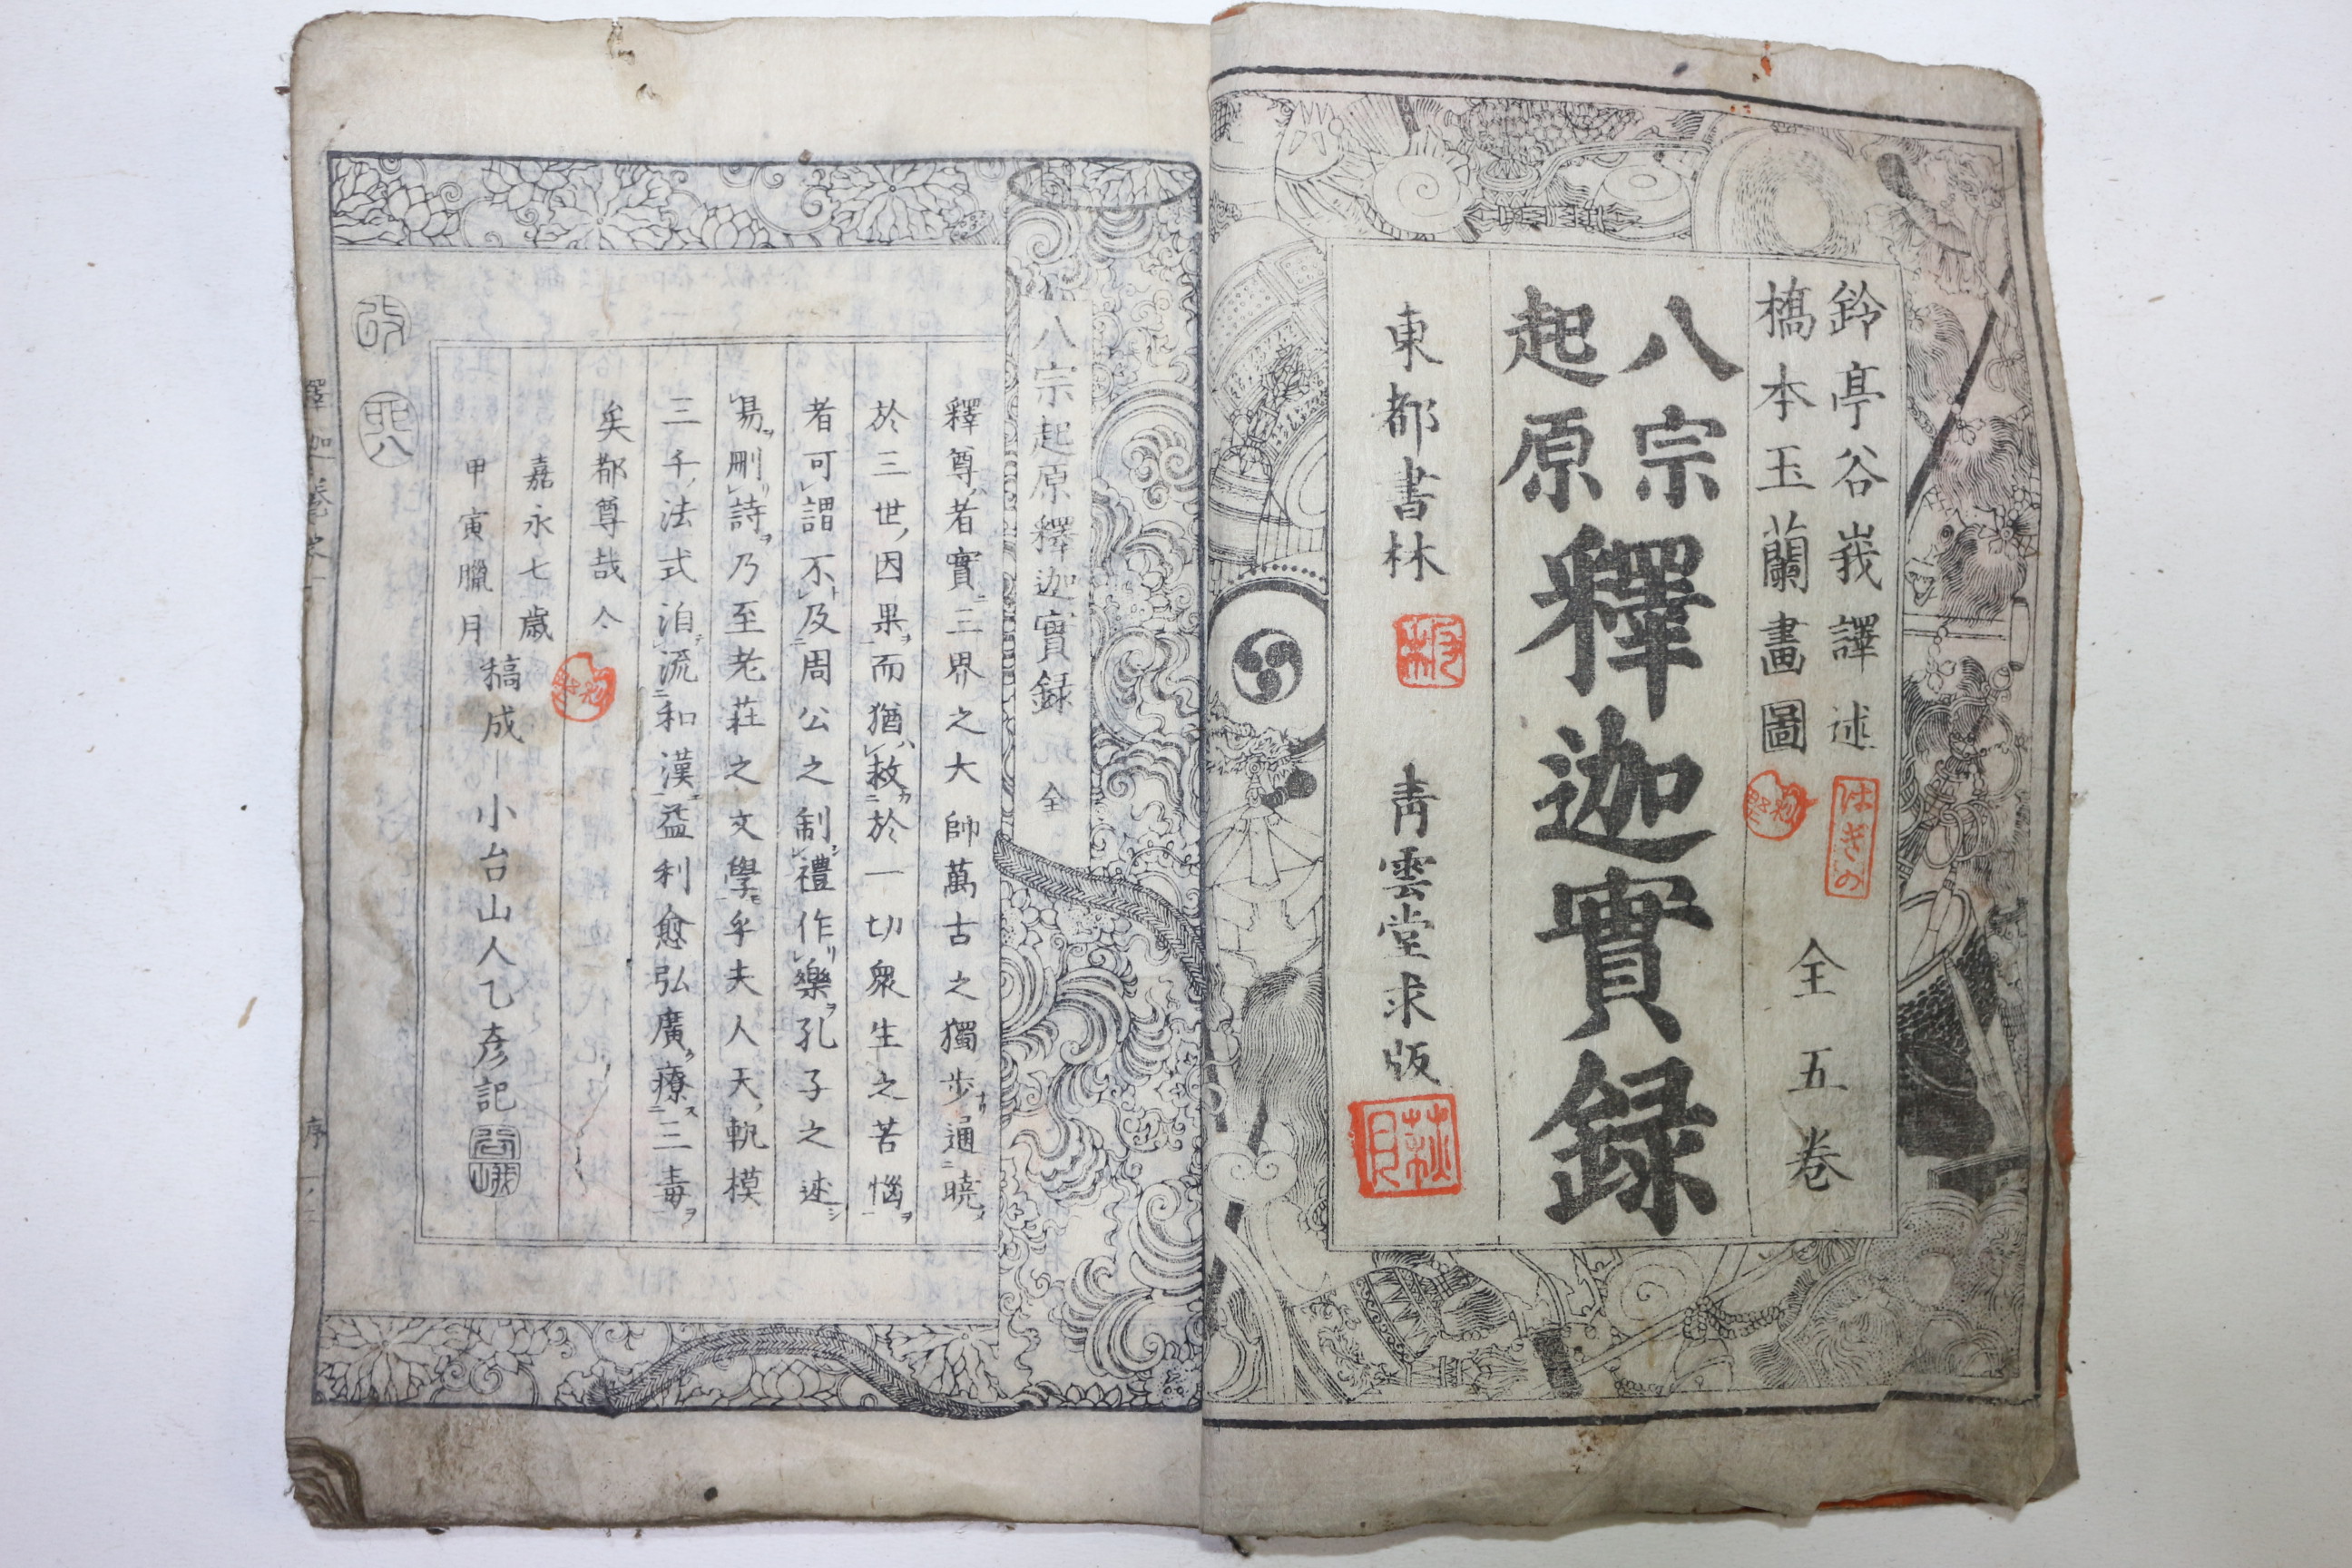 鈴亭谷峩譯述
はぎの
橋本玉蘭畫圖
全五卷
八宗
起原
釋迦實録
東都書林
青雲堂求版
萩月
八宗起原釋迦實録
全
釋尊者實三界之大帥萬古之獨歩通曉
於三世因果而猶救於一切衆生之苦惱
者可謂不及周公之制禮作樂孔子之述
易刪詩乃至老莊之文學乎夫人天軌模
三千法式洎流和漢益利愈弘廣療三毒
矣都尊哉亽
嘉永七歳
甲寅臘月
稿成
小台山人乙彦記
谷峨
序